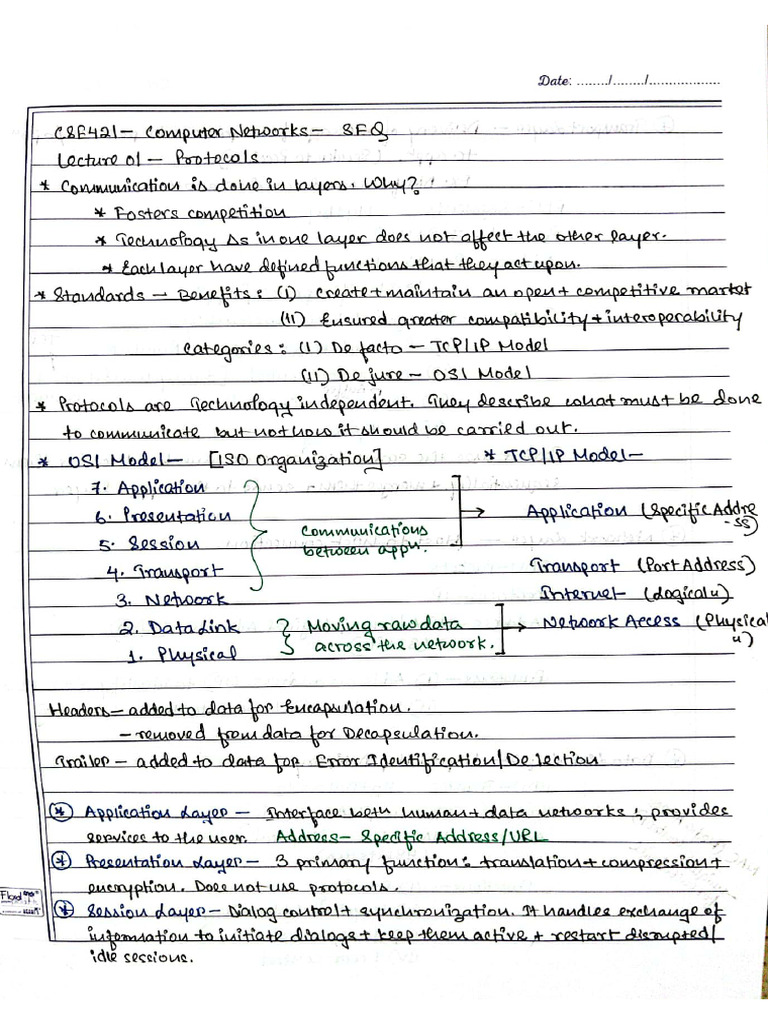 Date: ......../......../..................
CSE421 – Computer Networks – SFQ
Lecture 01 – Protocols
* Communication is done in layers. Why?
* Fosters competition
* Technology Δs in one layer does not affect the other layer.
* Each layer have defined functions that they act upon.
* Standards – Benefits: (I) Create + maintain an open + competitive market
(II) Ensured greater compatibility + interoperability
Categories: (I) De facto – TCP/IP Model
(II) De jure – OSI Model
* Protocols are Technology independent. They describe what must be done
to communicate but not how it should be carried out.
* OSI Model – [ISO Organization] * TCP/IP Model –
7. Application
6. Presentation → Application (Specific Addre
-ss)
5. Session Communications
between appn.
4. Transport Transport (Port Address)
3. Network Internet (Logical")
2. Data Link Moving raw data → Network Access (Physical
")
1. Physical across the network.
Headers – added to data for Encapsulation.
– removed from data for Decapsulation.
Trailer – added to data for Error Identification/Detection
* Application Layer – Interface betn human + data networks; provides
services to the user. Address – Specific Address/URL
* Presentation Layer – 3 primary function: translation + compression +
encryption. Does not use protocols.
* Session Layer – Dialog control + synchronization. It handles exchange of
information to initiate dialogs + keep them active + restart disrupted/
idle sessions.